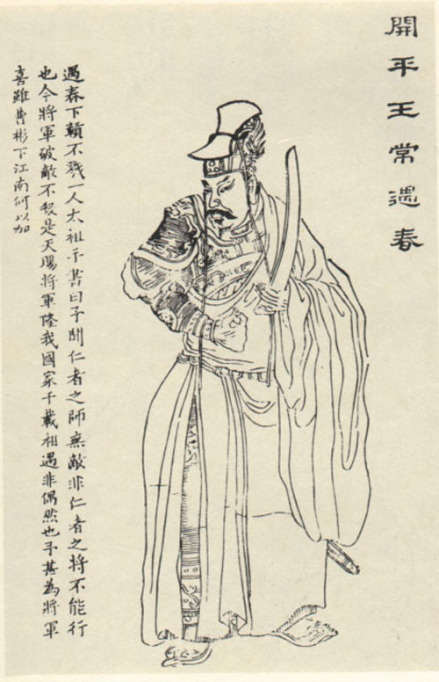 開平王常遇春
遇春下贛不戮一人太祖手書曰予聞仁者之師無敵非仁者之將不能行
也今將軍破敵不殺是天賜將軍隆我國家千載相遇非偶然也予甚為將軍
喜雖曹彬下江南何以加